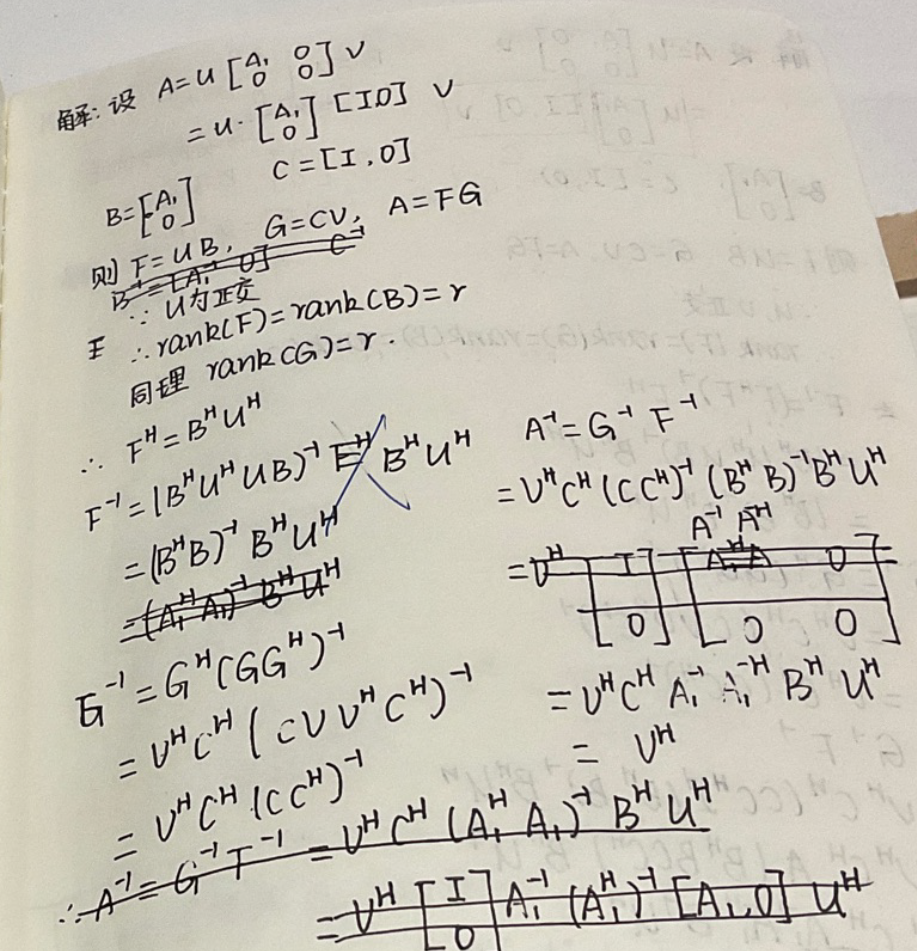 解: 设 A=U [A₁ 0 0 0] V
=U· [A₁ 0] [I 0] V
B=[A₁ 0] C=[I, 0]
则 F=UB, G=CV, A=FG
B⁻¹=[A₁⁻¹ 0] C⁻¹
∵ U为正交
∴ rank(F)=rank(B)=r
同理 rank(G)=r.
∴ Fᴴ=BᴴUᴴ
F⁻¹=(BᴴUᴴUB)⁻¹ Fᴴ BᴴUᴴ
=(BᴴB)⁻¹ BᴴUᴴ
=(A₁ᴴA₁)⁻¹ BᴴUᴴ
G⁻¹=Gᴴ(GGᴴ)⁻¹
=VᴴCᴴ(CVVᴴCᴴ)⁻¹
=VᴴCᴴ(CCᴴ)⁻¹
∴ A⁻¹=G⁻¹F⁻¹=VᴴCᴴ(A₁ᴴA₁)⁻¹BᴴUᴴ
=Vᴴ [I 0] A₁⁻¹(A₁ᴴ)⁻¹[A₁, 0] Uᴴ
A⁻¹=G⁻¹F⁻¹
=VᴴCᴴ(CCᴴ)⁻¹(BᴴB)⁻¹BᴴUᴴ
A⁻¹ A⁻ᴴ
=Vᴴ [I 0] [A₁ᴴA 0 0 0]
=VᴴCᴴA₁⁻¹A₁⁻ᴴBᴴUᴴ
=Vᴴ